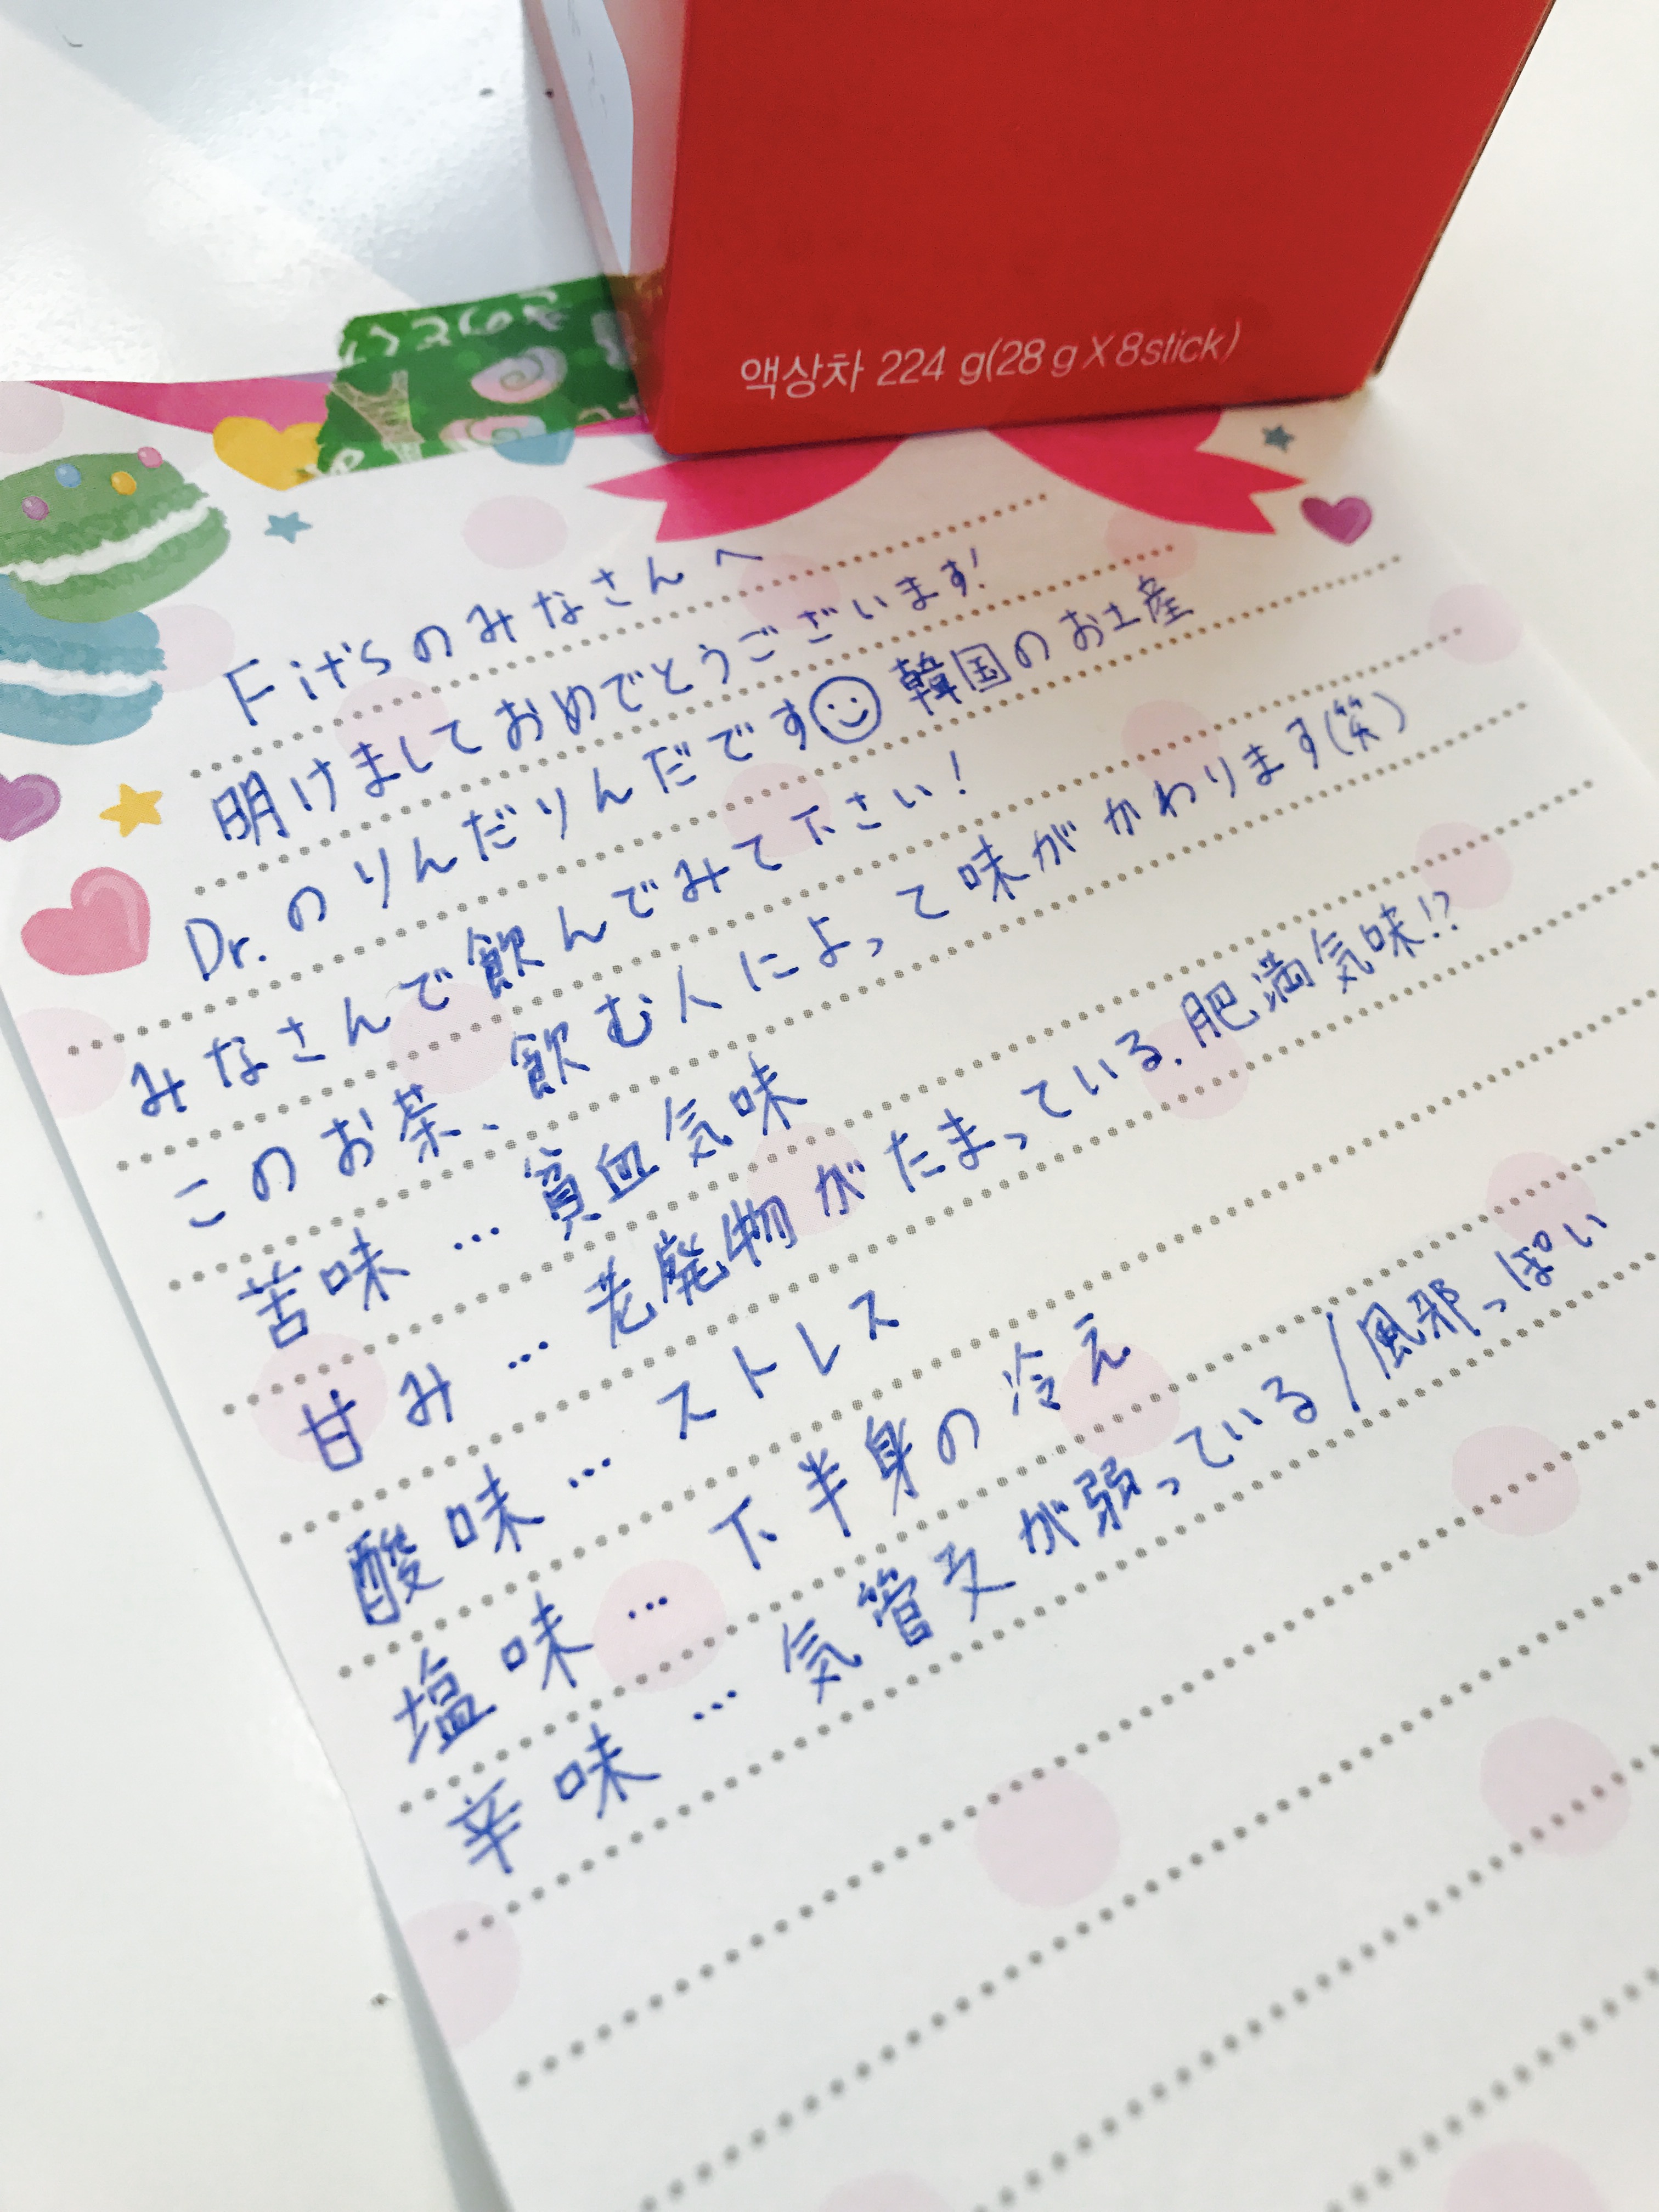 액상차 224 g(28 g X 8stick)
Fit'sのみなさんへ
明けましておめでとうございます!
Dr.のりんだりんだです 韓国のお土産
みなさんで飲んでみて下さい!
このお茶、飲む人によって味がかわります(笑)
苦味…貧血気味
甘み…老廃物がたまっている.肥満気味!?
酸味…ストレス
塩味…下半身の冷え
辛味…気管支が弱っている/風邪っぽい